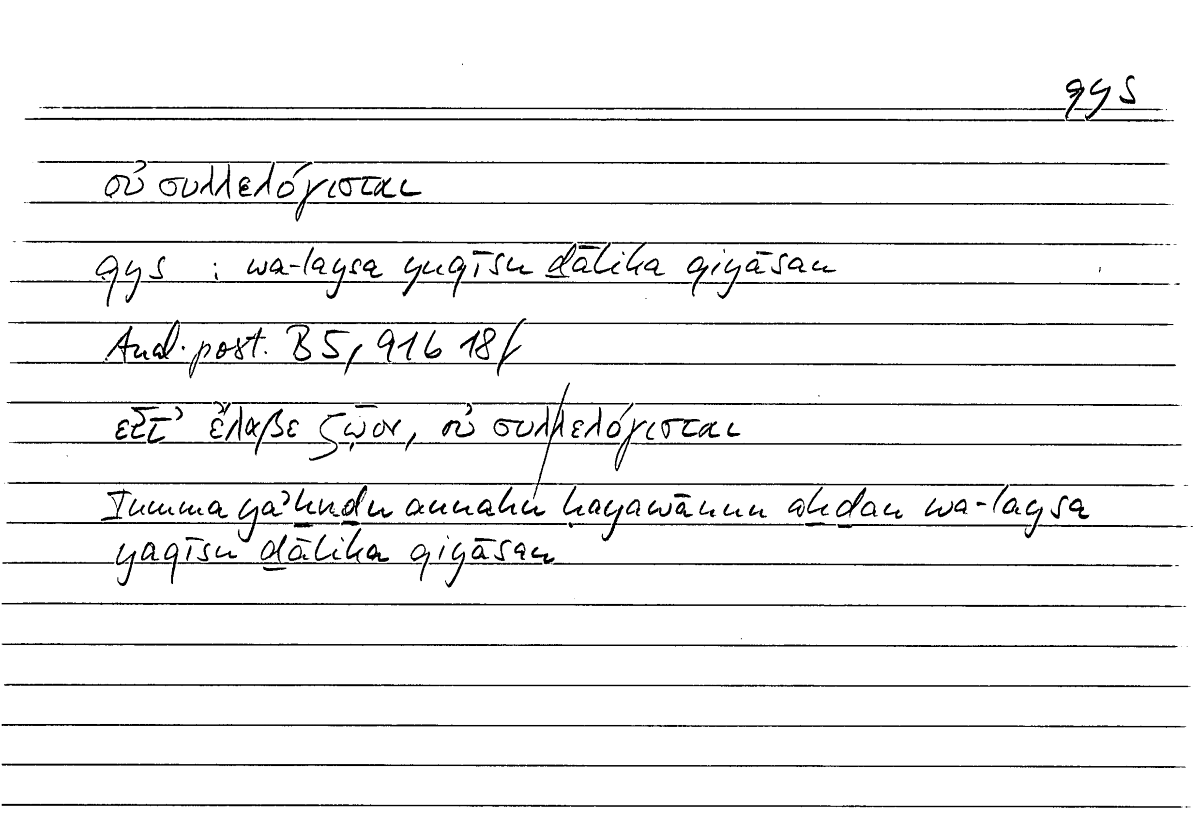 qys
οὐ συλλελόγισται
qys : wa-laysa yuqīsu ḏālika qiyāsan
Anal. post. B5, 91b 18f
εἶτ' ἔλαβε ζῷον, οὐ συλλελόγισται
Ṯumma yaʾḫuḏu annahū ḥayawānun aḫḏan wa-laysa
yaqīsu ḏālika qiyāsan